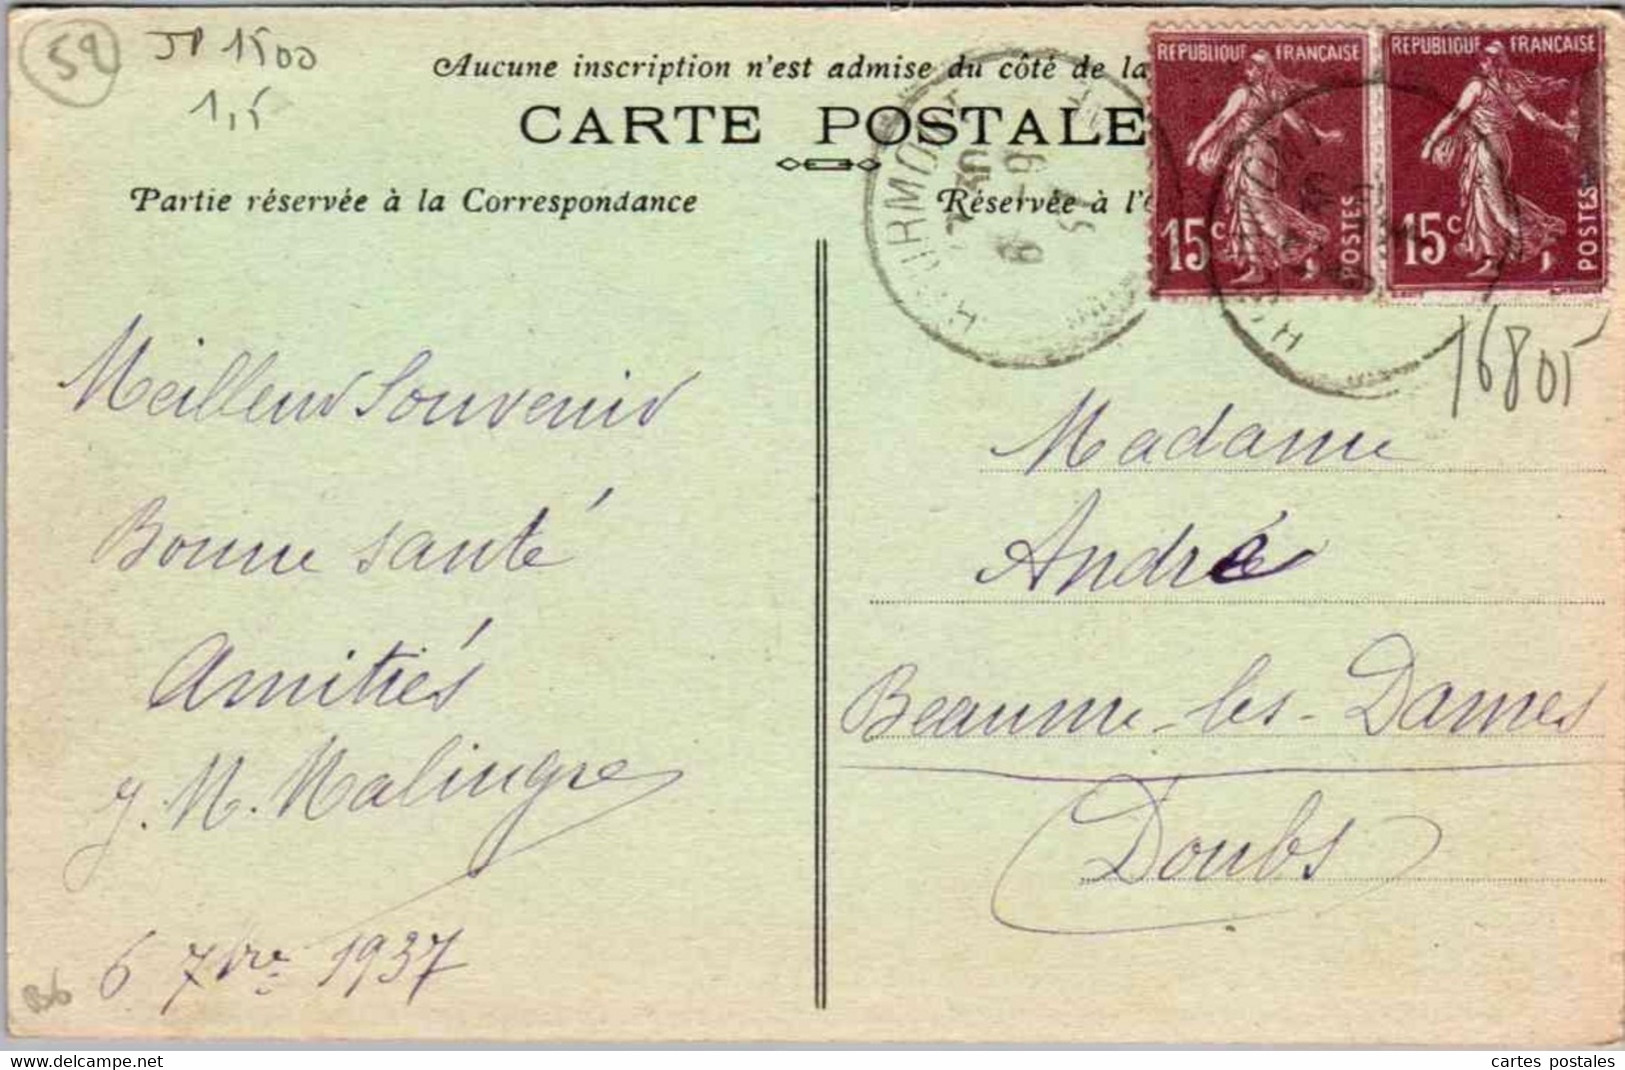 52
JP 1500
1,5
Aucune inscription n'est admise du côté de la
CARTE POSTALE
Partie réservée à la Correspondance
Réservée à l'
REPUBLIQUE FRANCAISE
15c
POSTES
REPUBLIQUE FRANCAISE
15c
POSTES
16805
Meilleur Souvenir
Bonne santé
Amitiés
J. M. Malingre
6 7bre 1937
B6
Madame
André
Beaume-les-Dames
Doubs
cartes postales